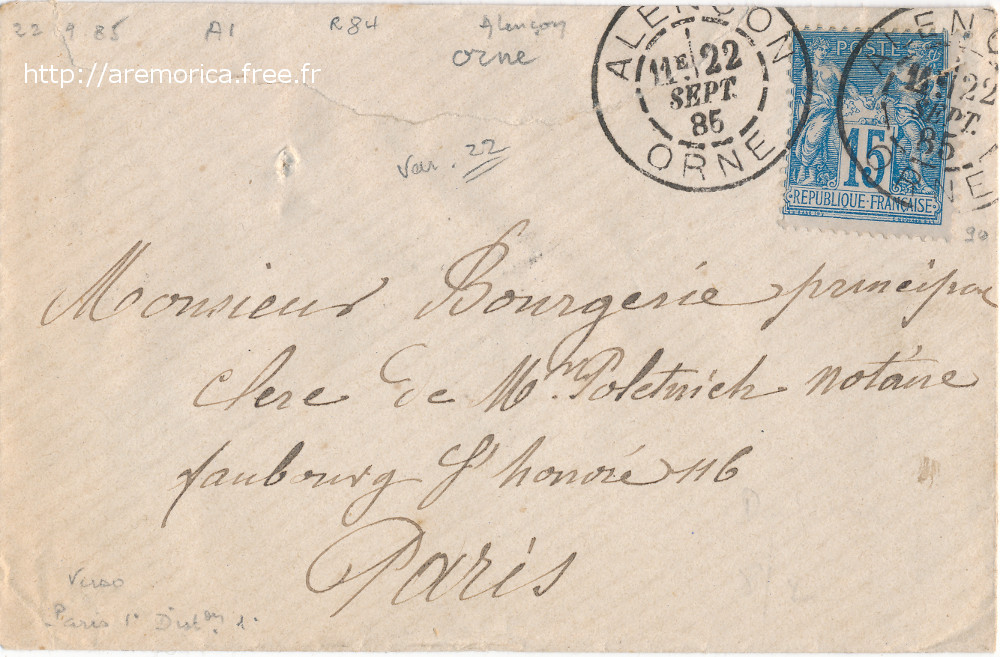 22 9 85 A1 R84 Alençon
orne
http://aremorica.free.fr
Var. 22
ALENÇON
11E 22
SEPT.
85
ORNE
POSTE
15
RÉPUBLIQUE FRANÇAISE
ALENÇON
22
SEPT.
85
ORNE
90
Monsieur Bourgerie principal
clerc de Mr Poletnich notaire
faubourg St honoré 116
Paris
Verso
Paris 1e Diston 1e